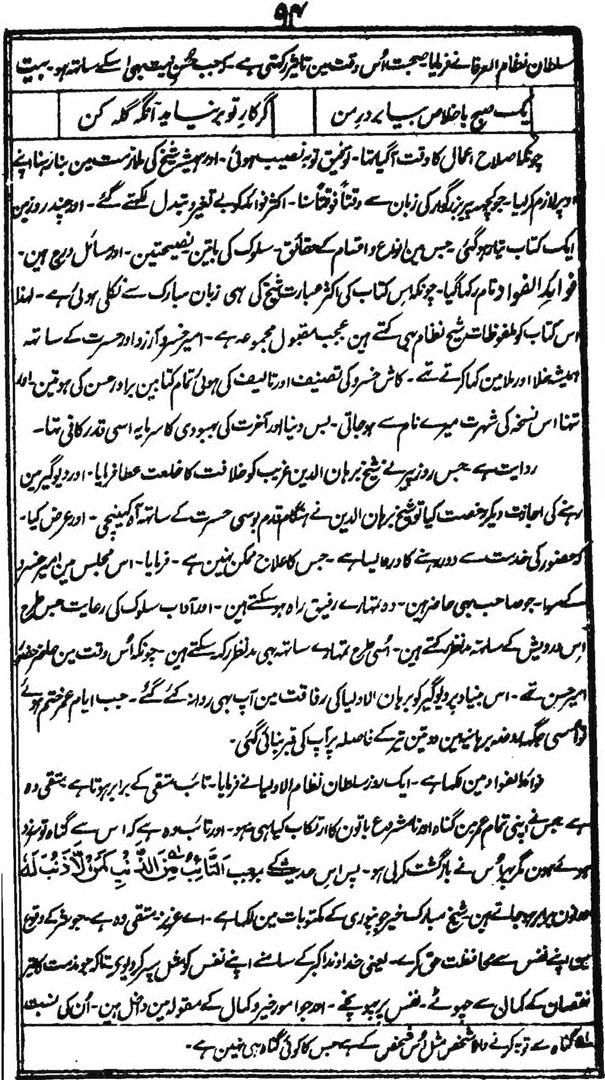 ۹۴
سلطان نظام العرفا نے فرمایا صحبت اُس وقت مین تاثیر رکھتی ہے۔ کہ جب حُسنِ نیت بھی اُسکے ساتھہ ہو۔ بیت
یک صبح باخلاص بیا بر در من
گر کار تو بر نیاید آنگہ گلہ کن
چونکہ اصلاح اعمال کا وقت آگیا تھا۔ توفیق توبہ نصیب ہوئی۔ اور ہمیشہ شیخ کی ملازمت مین بنا رہنا اپنے
اوپر لازم کرلیا۔ جو کچھہ پیر بزرگوار کی زبان سے وقتاً فوقتاً سنا۔ اکثر فوائد کو بے تغیر و تبدل لکھتے گئے۔ اور چند روز مین
ایک کتاب تیار ہو گئی۔ جس مین بانواع و اقسام کے حقائق۔ سلوک کی باتین نصیحتین۔ اور مسائل درج ہین۔
فوائد الفواد نام رکھا گیا۔ چونکہ اس کتاب کی اکثر عبارت شیخ کی ہی زبان مبارک سے نکلی ہوئی ہے۔ لہذا
اس کتاب کو ملفوظات شیخ نظام بھی کہتے ہین عجب مقبول مجموعہ ہے۔ امیر خسرو آرزو اور حسرت کے ساتھہ
ہمیشہ خلا اور ملا مین کہا کرتے تھے۔ کاش خسرو کی تصنیف اور تالیف کی ہوئی تمام کتابین برادر حسن کی ہوتین اور
تنہا اس نسخہ کی شہرت میرے نام سے ہو جاتی۔ بس دنیا اور آخرت کی بہبودی کا سرمایہ اسی قدر کافی تھا۔
روایت ہے جس روز پیر نے شیخ برہان الدین غریب کو خلافت کا خلعت عطا فرمایا۔ اور دیوگیر مین
رہنے کی اجازت دیکر رخصت کیا تو شیخ برہان الدین نے ہنگام قدم بوسی حسرت کے ساتھہ آہ کھینچی۔ اور عرض کیا۔
کہ حضور کی خدمت سے دور رہنے کا درد ایسا ہے۔ جس کا علاج ممکن نہین ہے۔ فرمایا۔ اس مجلس مین امیر خسرو
کے سوا۔ جو صاحب بھی حاضر ہین۔ وہ تمہارے رفیق راہ ہو سکتے ہین۔ اور آداب سلوک کی رعایت جس طرح
اس درویش کے ساتھہ مد نظر رکھتے ہین۔ اُسی طرح تمہارے ساتھہ بھی مد نظر رکھہ سکتے ہین۔ چونکہ اُس وقت مین حاضر حضور
امیر حسن تھے۔ اس بنیاد پر دیوگیر کو برہان الاولیا کی رفاقت مین آپ بھی روانہ کئے گئے۔ جب ایام عمر ختم ہوئے
تو اُسی جگہ روضہ برہانیہ مین دو تین تیر کے فاصلہ پر آپ کی قبر بنائی گئی۔
فوائد الفواد مین لکھا ہے۔ ایک روز سلطان نظام الاولیا نے فرمایا۔ تائب متقی کے برابر ہوتا ہے متقی وہ
ہے جس نے اپنی تمام عمر مین گناہ اور نامشروع باتون کا ارتکاب کیا ہی نہو۔ اور تائب وہ ہے کہ اس سے گناہ تو سرزد
ہوئے ہون مگر پھر اُس نے بازگشت کرلی ہو۔ پس اس حدیث کے بموجب اَلتَّائِبُ مِنَ الذَّنْبِ کَمَنْ لَّا ذَنْبَ لَهٗ
دونون برابر ہو جاتے ہین شیخ مبارک خیر جونپوری کے مکتوبات مین لکھا ہے۔ اے عزیز متقی وہ ہے۔ جو شر کے وقوع
مین اپنے نفس سے محافظت حق کرے۔ یعنی خداوند اکبر کے سامنے اپنے نفس کو مثل سپر کر دیوے تاکہ جو مذمت کا تیر
نقصان کے کمان سے چھوٹے۔ نفس پر پہونچے۔ اور جو امور خیر و کمال کے مقولہ مین داخل ہین۔ اُن کی نسبت
لہ گناہ سے توبہ کرنے والا شخص مثل اُس شخص کے ہے جس کا کوئی گناہ ہی نہین ہے۔